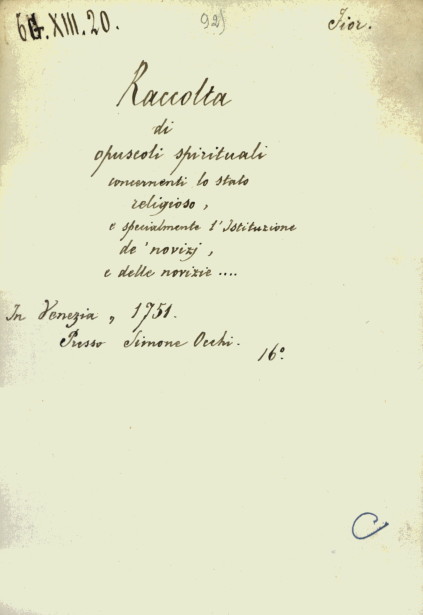 6G.XIII.20.
92)
Fior.
Raccolta
di
opuscoli spirituali
concernenti lo stato
religioso,
e specialmente l'Istituzione
de' novizj,
e delle novizie....
In Venezia, 1751.
Presso Simone Occhi.
16°
C